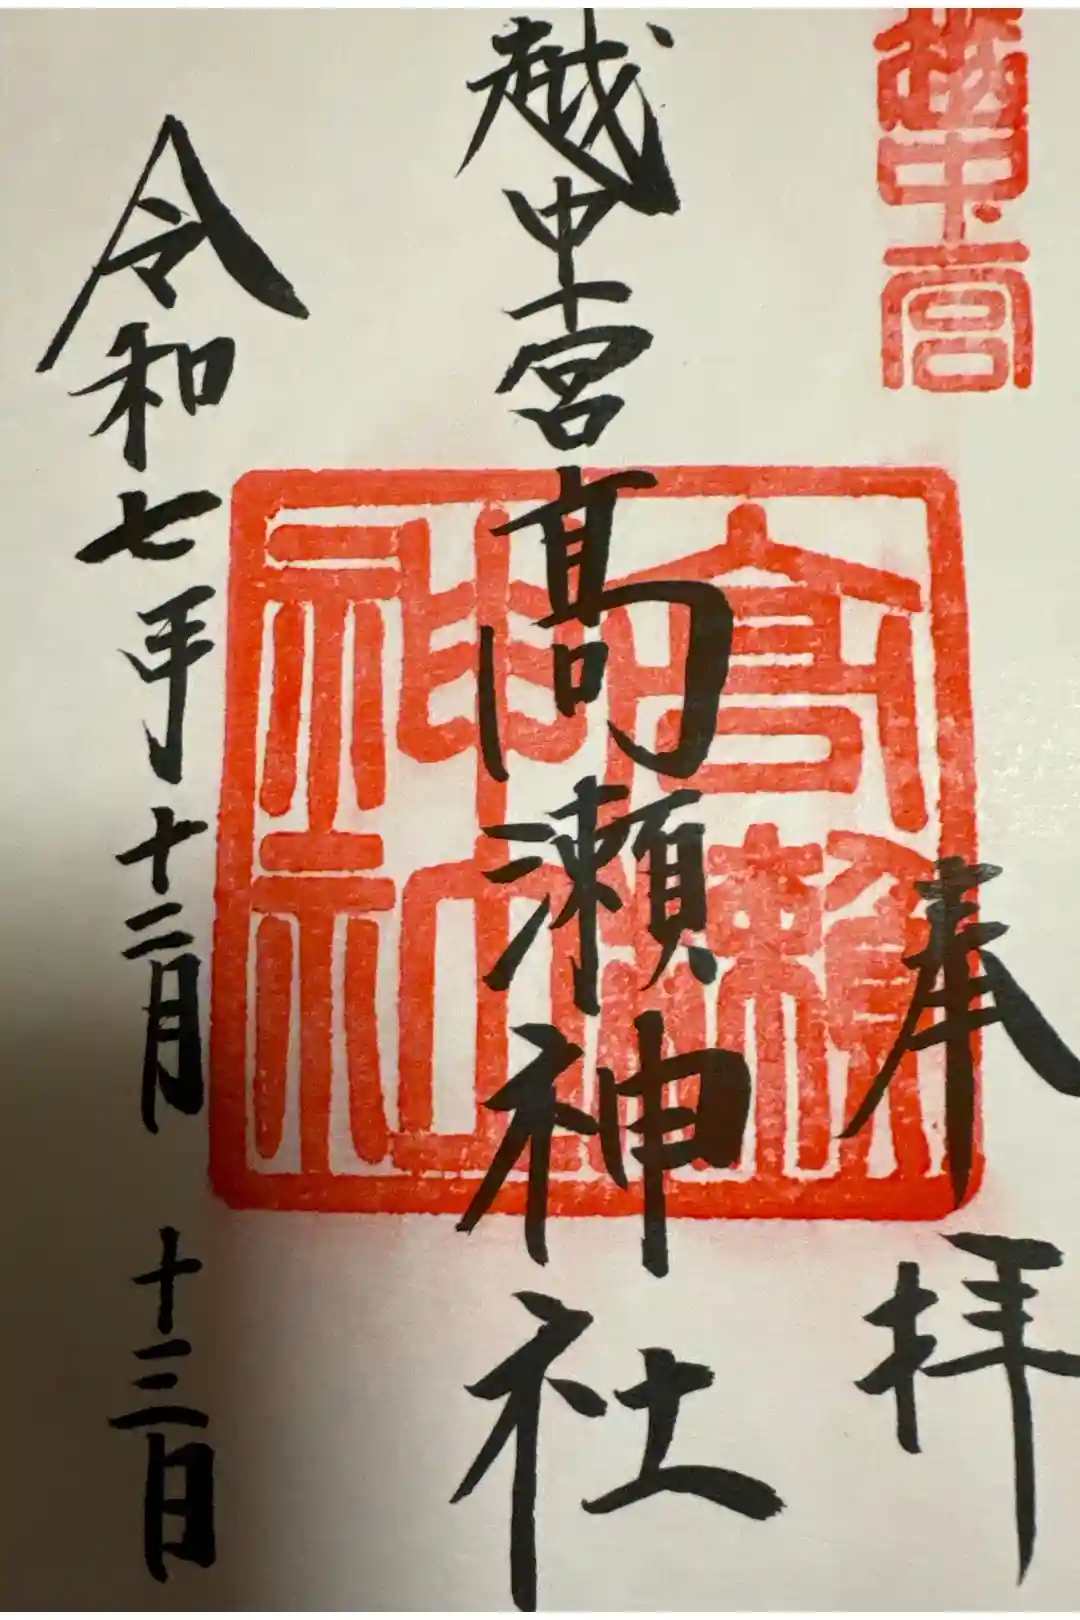 越中一宮
奉拝
高瀬
神社
越中一宮髙瀬神社
令和七年十二月十三日